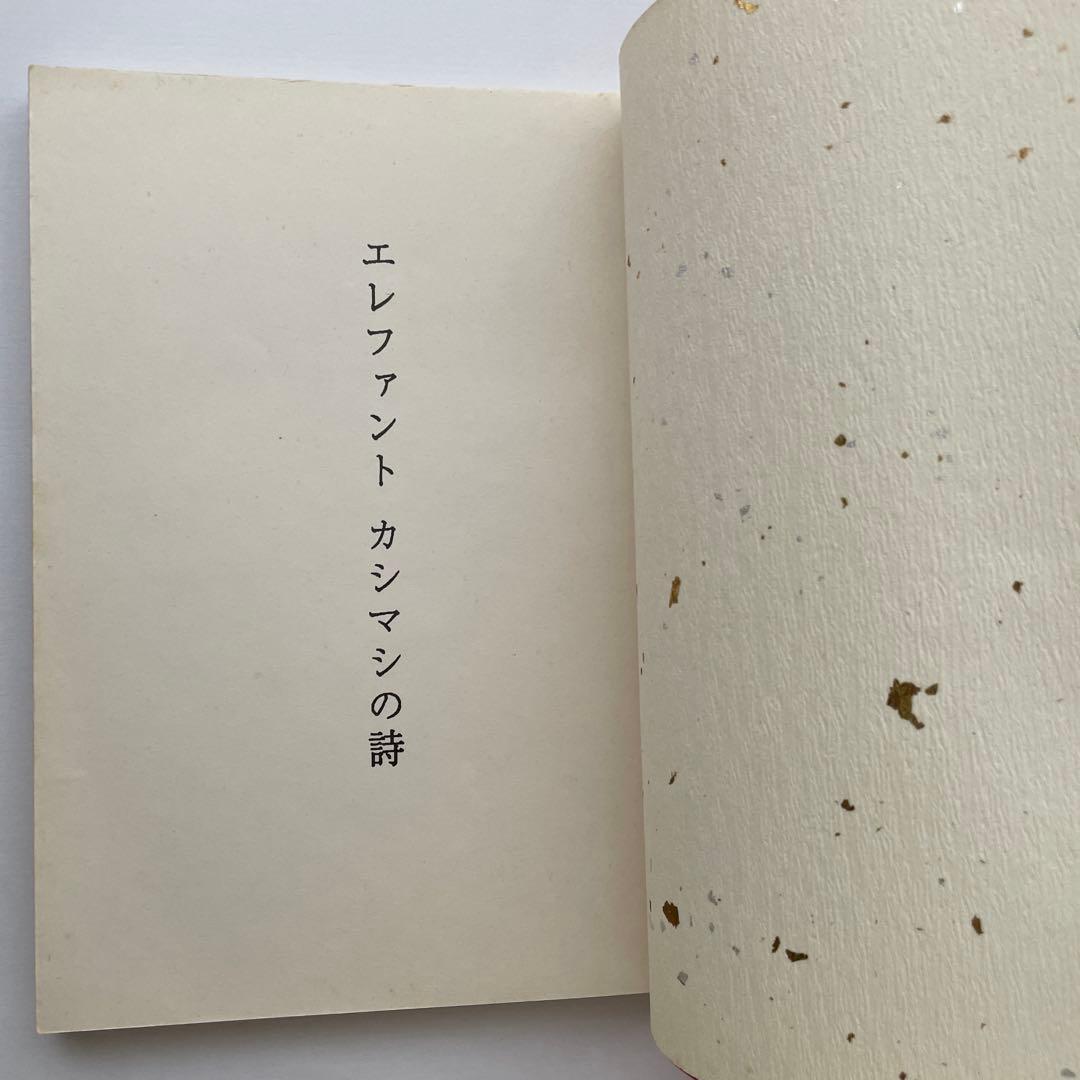 エレファント カシマシの詩